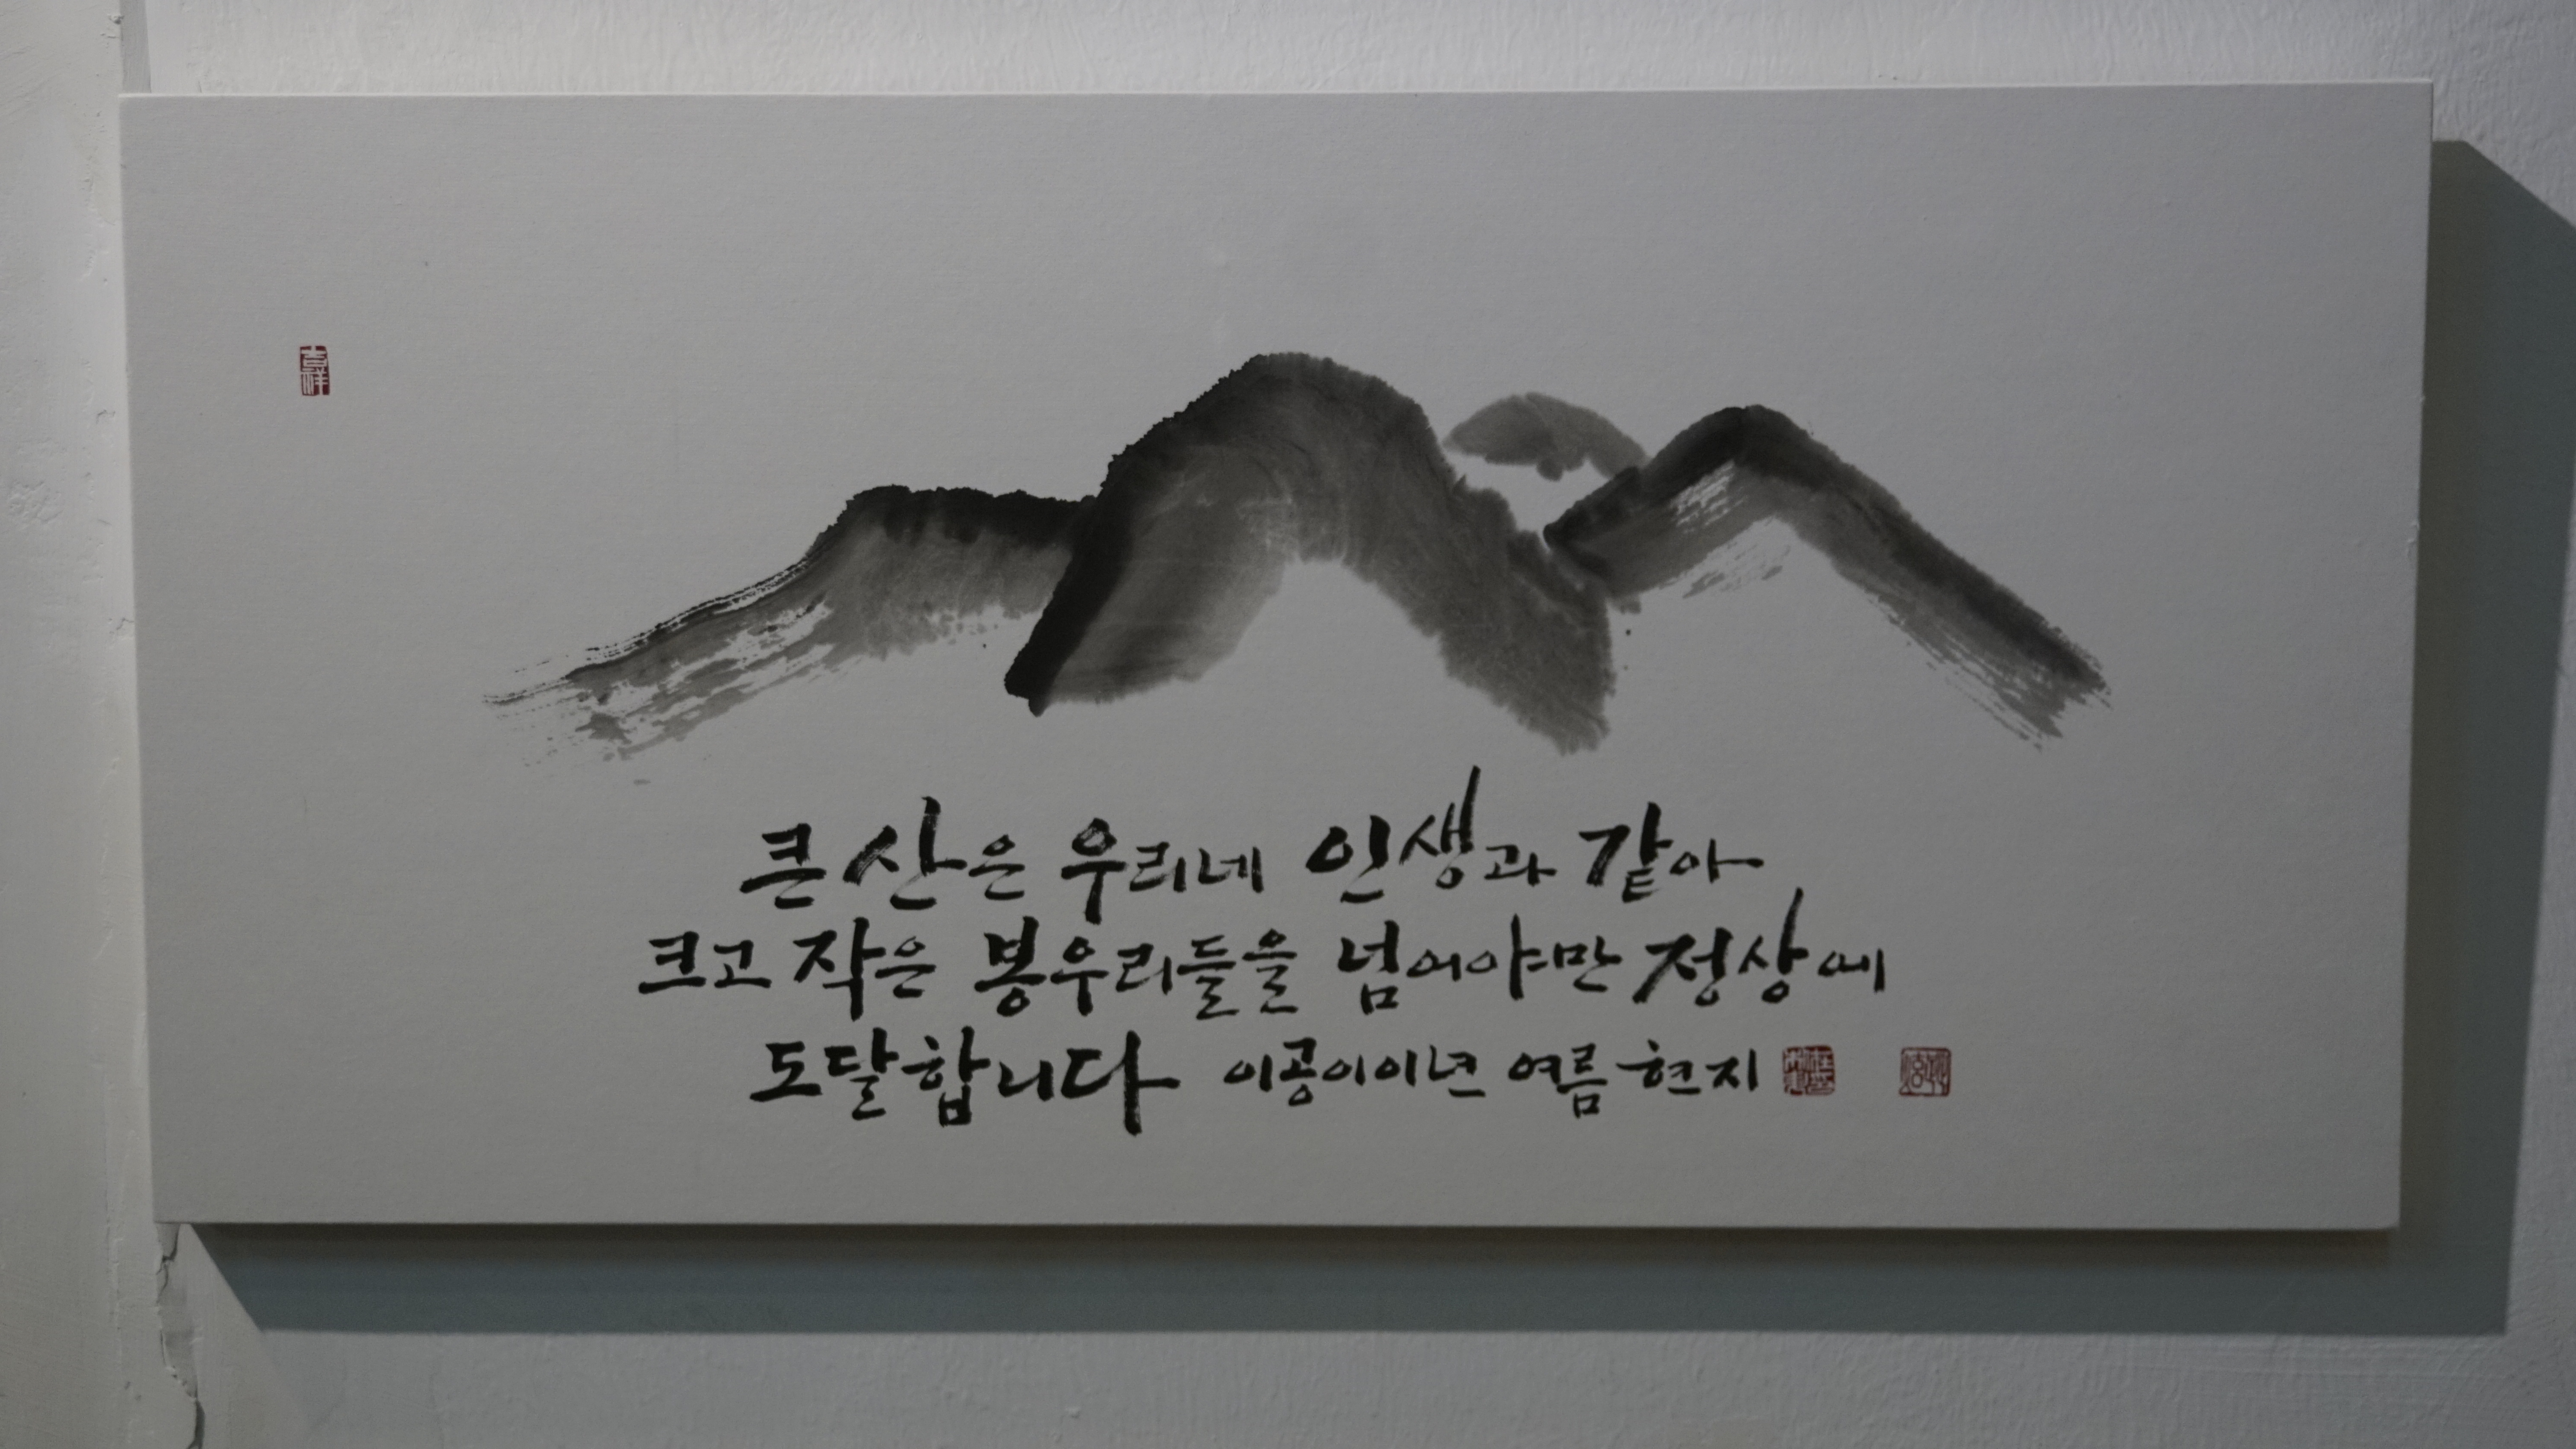 吉祥
큰 산은 우리네 인생과 같아
크고 작은 봉우리들을 넘어야만 정상에
도달합니다 이공이이년 여름 현지